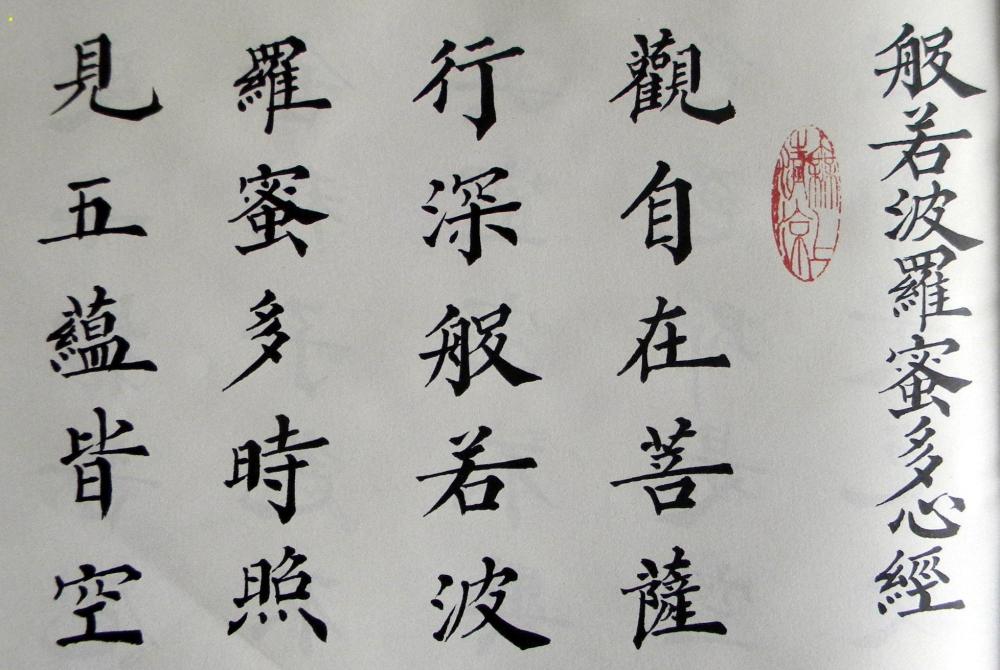 般若波羅蜜多心經
無上清涼
觀自在菩薩
行深般若波
羅蜜多時照
見五蘊皆空